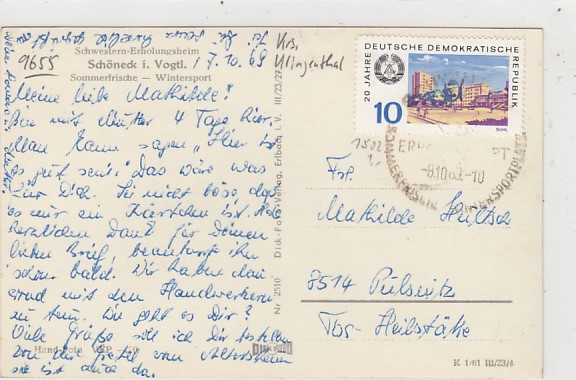 9655
Schwestern-Erholungsheim
Schöneck i. Vogtl.
Sommerfrische — Wintersport
7.10.69
Krs.
Klingenthal
Meine liebe Mathilde!
Bin mit Mutter 4 Tage hier
Man kann sagen "Hier ist
es gut sein", das wäre was
für Dich. Sei nicht böse das
es nur ein Kärtchen ist. Hab
herzlichen Dank für Deinen
lieben Brief, beantworte ihn
schon bald. Wir haben
mit den Handwerkern
zu tun. Wie geht es Dir?
Viele Grüße soll ich Dir bestellen
von
sie ist auch da.
Hand-Foto
Nr. 2510 Dick-Foto-Verlag, Erlbach i. V. III/23/27
20 JAHRE DEUTSCHE DEMOKRATISCHE REPUBLIK
10
SUHL
-8.10.69.-10
SOMMERFRISCHE
WINTERSPORTPLATZ
Frl.
Mathilde
8514 Pulsnitz
Tbc-Heilstätte
K 1/61 III/23/6